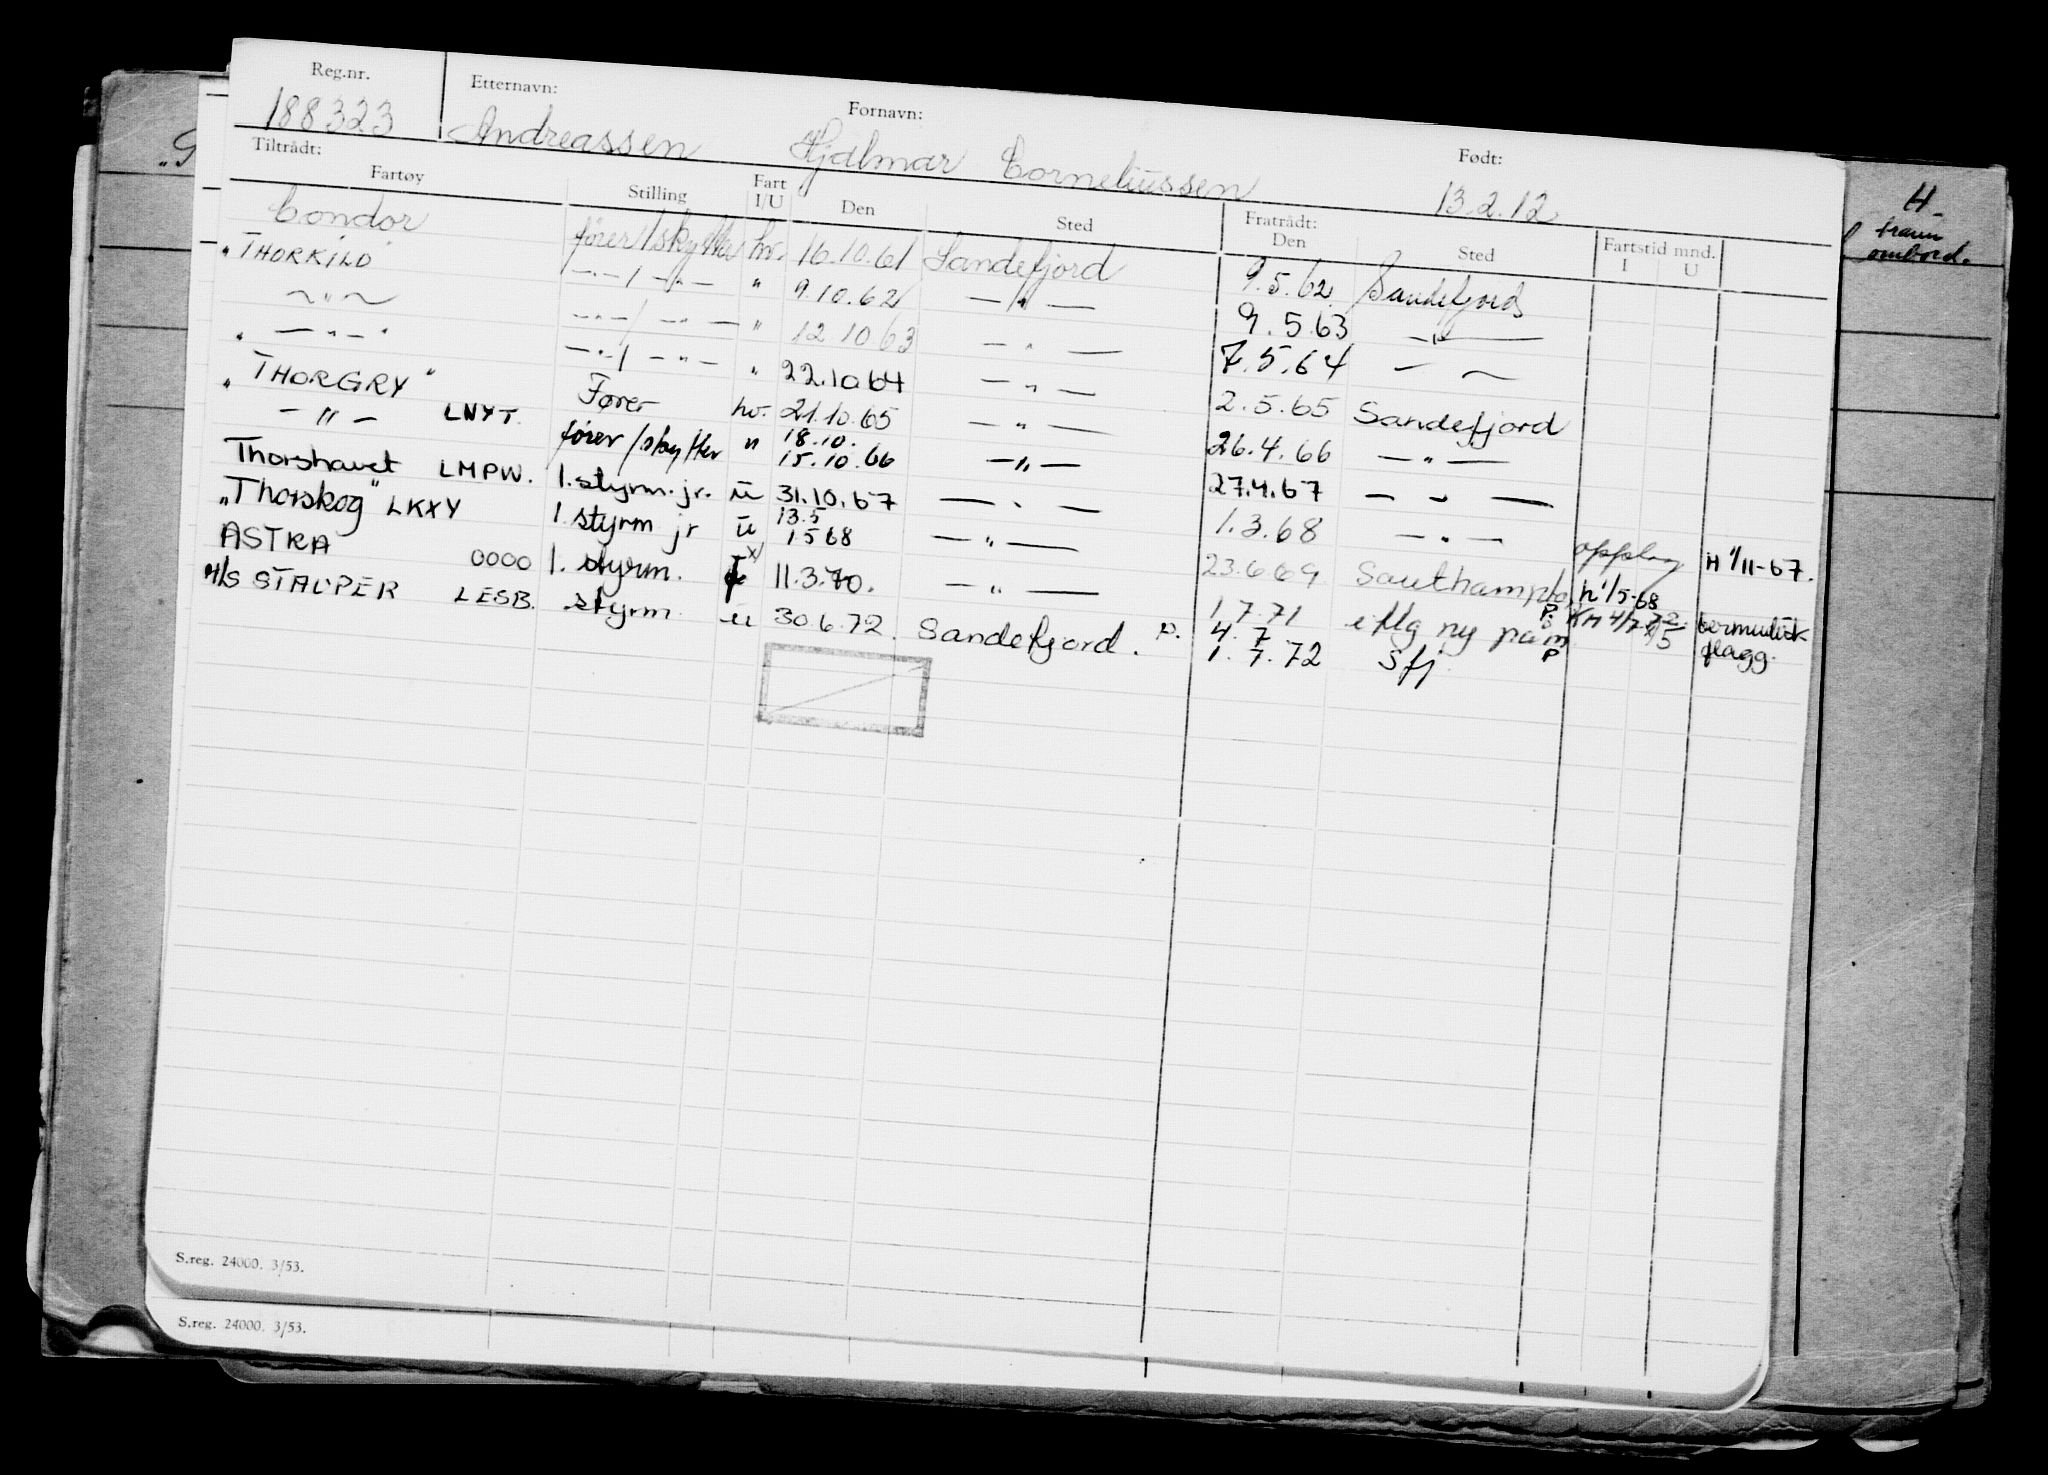 Reg.nr. Etternavn: Fornavn: Født:
188323 Andreassen Hjalmar Corneliussen 13.2.12
Tiltrådt: Fratrådt:
Fartøy Stilling Fart I/U Den Sted Den Sted Fartstid mnd. I U
Condor fører/skytter hv. 16.10.61 Sandefjord 9.5.62 Sandefjord
"THORKILD —"—/—"— " 9.10.62 —"— 9.5.63 —"—
—"— —"—/—"— " 12.10.63 —"— 7.5.64 — —
" —"— " —"—/—"— " 22.10.64 —"— 2.5.65 Sandefjord
"THORGRY" Fører hv. 21.10.65 —"— 26.4.66 —"—
" —"— LNYT. fører/skytter " 18.10. 15.10.66 —"— 27.4.67 —"—
Thorshavet LMPW. 1.styrm.jr. u 31.10.67 —"— 1.3.68 —"— opplag H 1/11-67.
"Thorskog" LKXY 1 styrm jr u 13.5 1568 —"— 23.6.69 Southampton h 1/5-68
ASTRA 0000 1. styrm. x) 11.3.70. —"— 1 7.71 P. bermudisk flagg.
M/S STALPER LESB. styrm. u 30.6.72. Sandefjord. P. 4.7 1.7.72 Sfj. P
S.reg. 24000. 3/53.
S.reg. 24000. 3/53.
H-
ombord.